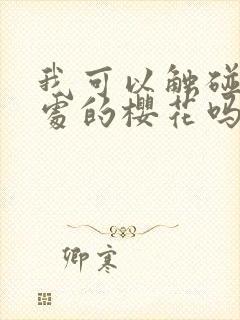 我可以触碰
处的樱花吗
卿寒